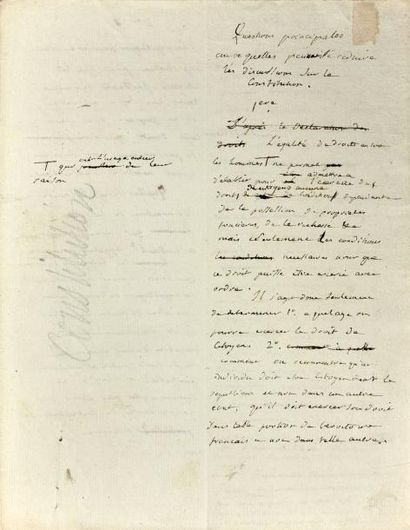 Questions principales
auxquelles peuvent se réduire
les discussions sur la
Constitution.
1ere
D'après la Déclaration des
droits L'égalité de droits entre
les hommes ne permet
d'établir pour l'exercice des
droits de citoyens aucune condition dépendante
de la possession de propriétés
foncières, de la richesse
mais seulement des conditions
les conditions necessaires pour que
ce droit puisse être exercé avec
ordre.
Il s'agit donc seulement
de determiner 1°. a quel age on
pourra exercer le droit de
Citoyen 2°.
comment on reconnoitra qu'un
individu doit être Citoyen dans la
république et non dans un autre
etat, qu'il doit exercer son droit
dans telle portion du territoire
français et non dans telle autre.
que de leur
raison
Constitution